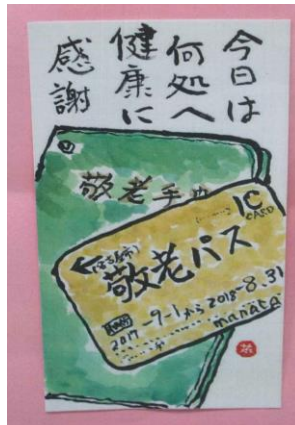 今日は
何処へ
健康に
感謝
敬老手
IC
CARD
敬老パス
2017-9-1から2018-8.31
manaca